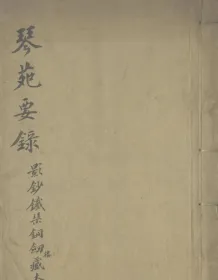 琴苑要錄
影鈔鐵琴銅劍樓藏本